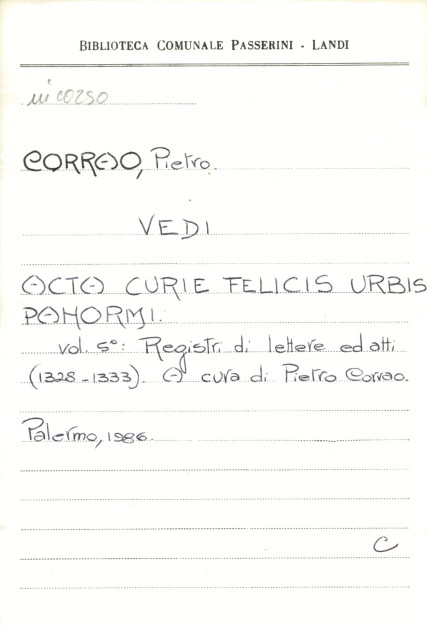 BIBLIOTECA COMUNALE PASSERINI - LANDI
in corso
CORRAO, Pietro.
VEDI
ACTA CURIE FELICIS URBIS
PANORMI.
vol. 5°: Registri di lettere ed atti
(1328-1333). A cura di Pietro Corrao.
Palermo, 1986.
C